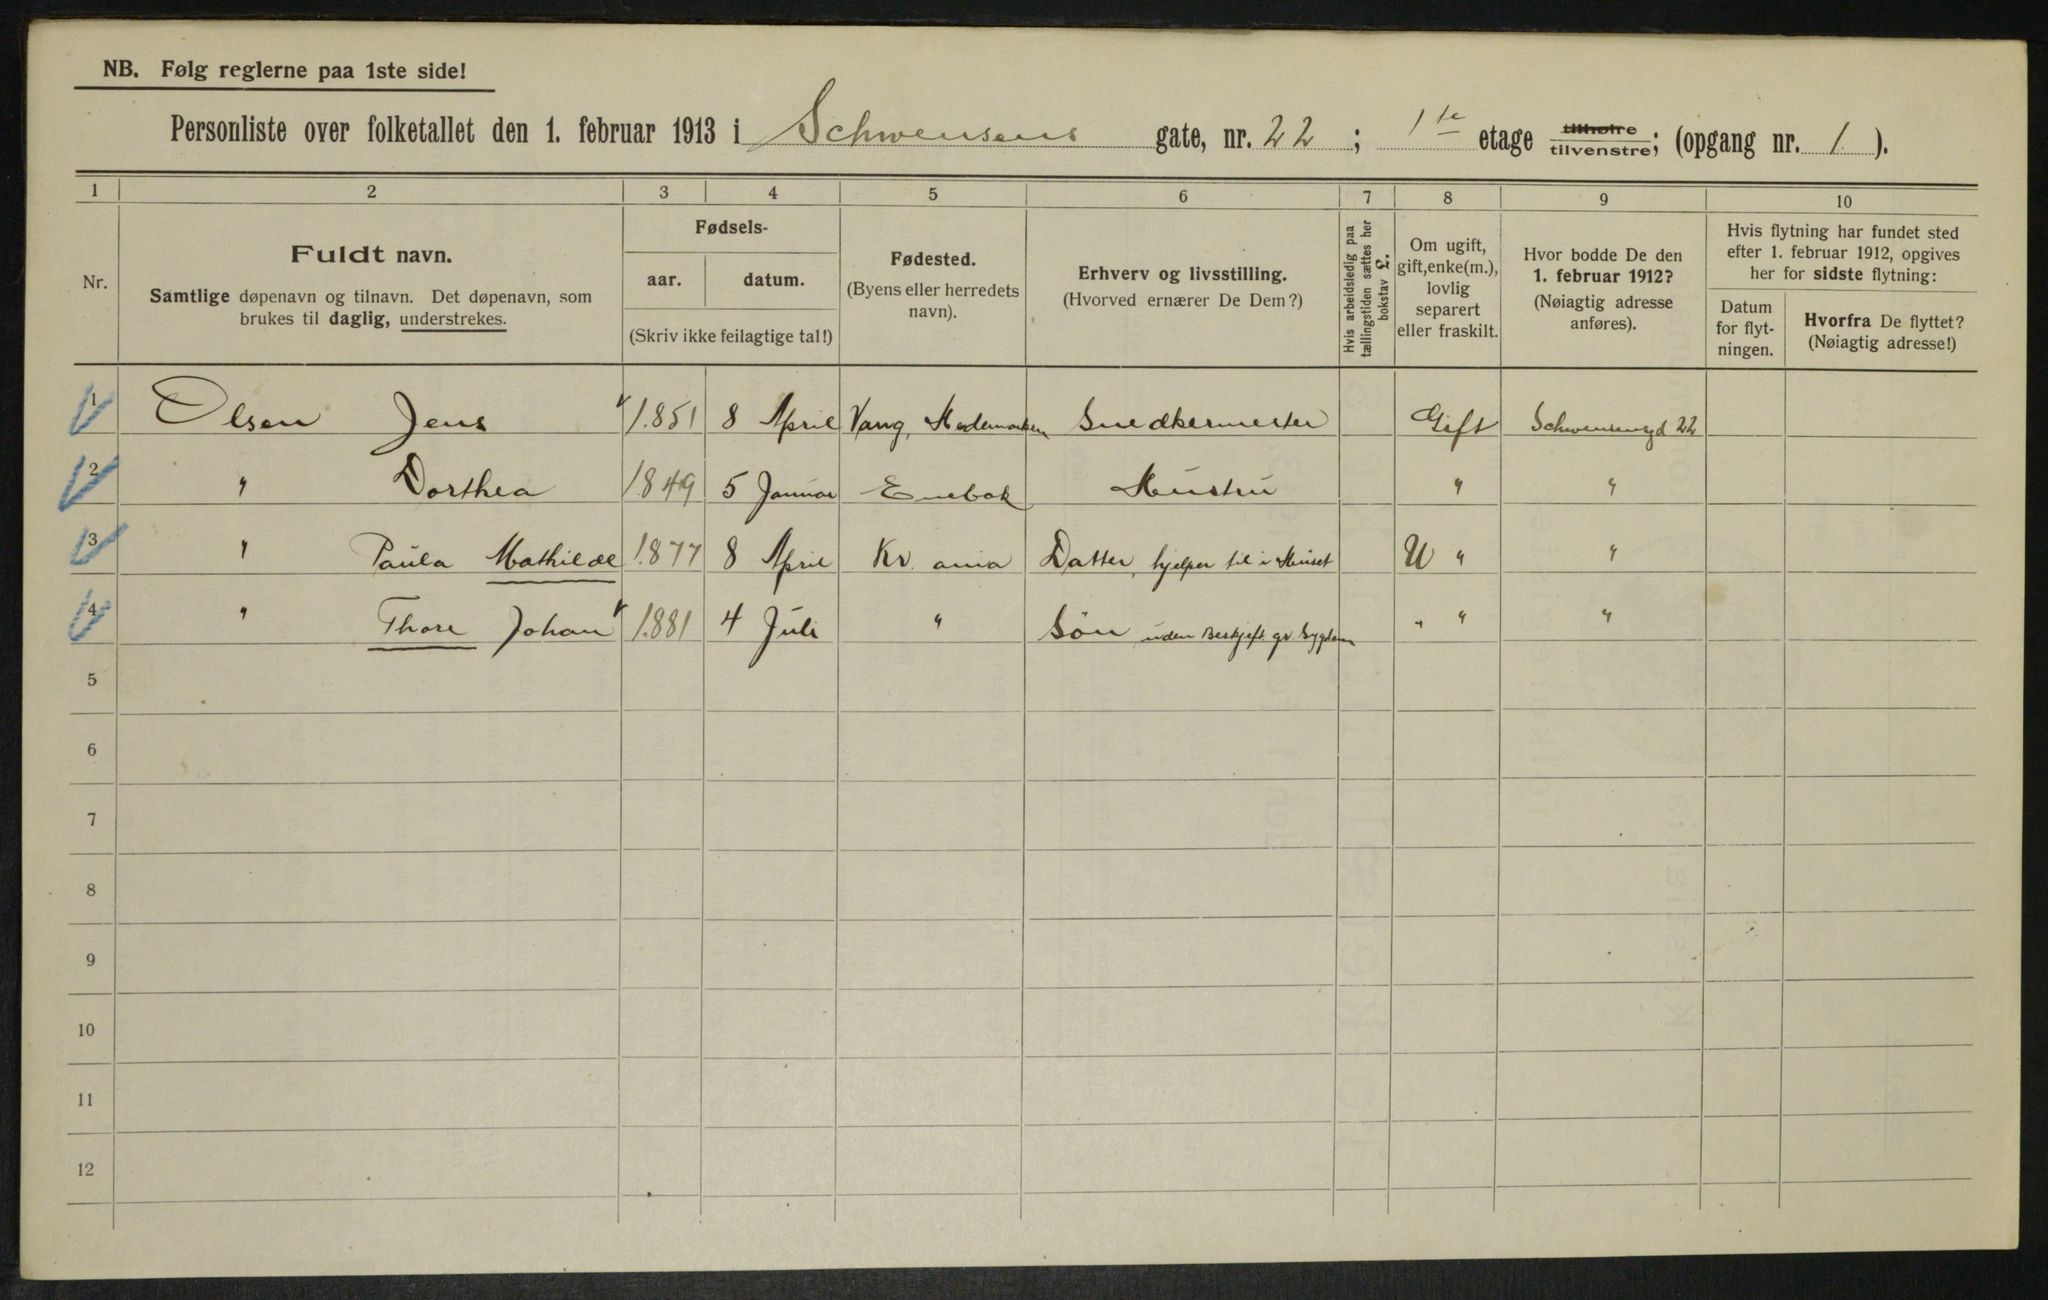 NB. Følg reglerne paa 1ste side!
Personliste over folketallet den 1. februar 1913 i Schwensens gate, nr. 22 ; 1te etage tilhøire tilvenstre; (opgang nr. 1 ).
1 2 3 4 5 6 7 8 9 10
Nr.
Fuldt navn.
Samtlige døpenavn og tilnavn. Det døpenavn, som
brukes til daglig, understrekes.
Fødsels-
aar. datum.
(Skriv ikke feilagtige tal!)
Fødested.
(Byens eller herredets
navn).
Erhverv og livsstilling.
(Hvorved ernærer De Dem?)
Hvis arbeidsledig paa
tællingstiden sættes her
bokstav L.
Om ugift,
gift, enke(m.),
lovlig
separert
eller fraskilt.
Hvor bodde De den
1. februar 1912?
(Nøiagtig adresse
anføres).
Hvis flytning har fundet sted
efter 1. februar 1912, opgives
her for sidste flytning:
Datum
for flyt-
ningen.
Hvorfra De flyttet?
(Nøiagtig adresse!)
1 Olsen Jens 1851 8 April Vang, Hedemarken Snedkermester Gift Schwensensgd 22
2 " Dorthea 1849 5 Januar Enebak Hustru " "
3 " Paula Mathilde 1877 8 April Kr. ania Datter, hjelper til i Huset U " "
4 " Thore Johan 1881 4 Juli " Sön uden Beskjeft. gr. Sygdom " " "
5
6
7
8
9
10
11
12